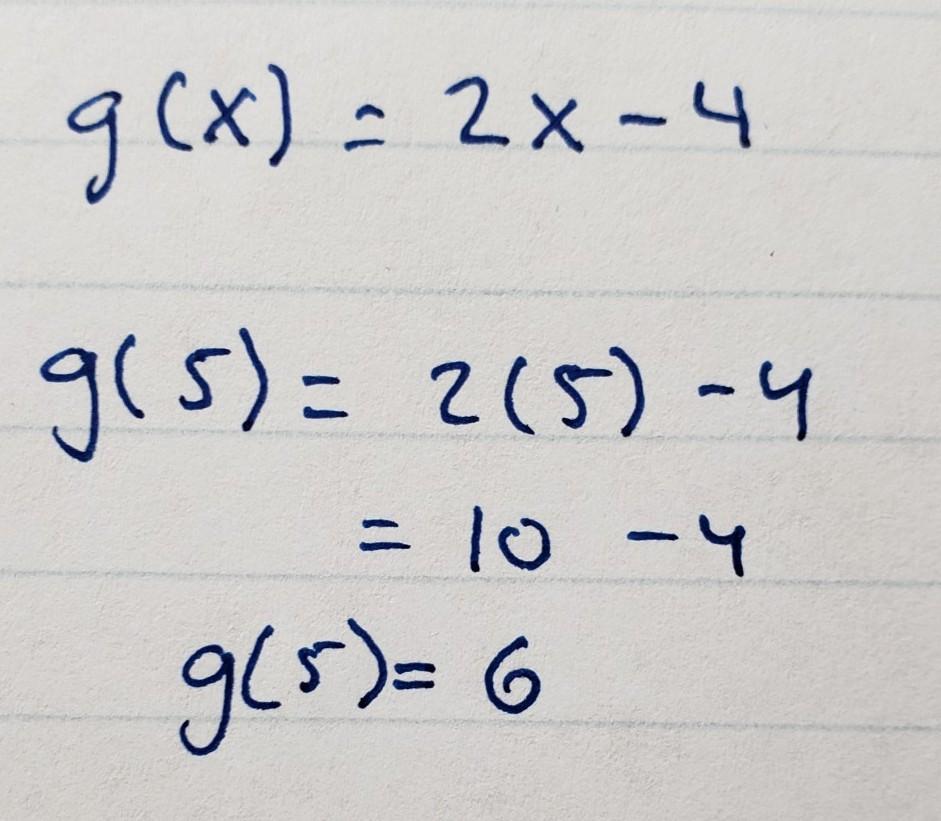 g(x) = 2x - 4
g(5) = 2(5) - 4
= 10 - 4
g(5) = 6